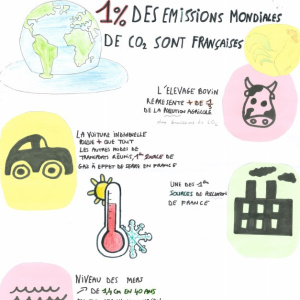 1% DES EMISSIONS MONDIALES
DE CO2 SONT FRANÇAISES
L'ELEVAGE BOVIN
REPRÉSENTE + DE
DE LA POLLUTION AGRICOLE
LA VOITURE INDIVIDUELLE
POLLUE + QUE TOUT
LES AUTRES MODES DE
TRANSPORT RÉUNIS, 1ère SOURCE DE
GAZ À EFFET DE SERRE EN FRANCE
UNE DES 1ères
SOURCES DE POLLUTION
DE FRANCE
NIVEAU DES MERS
DE 14 CM EN 40 ANS